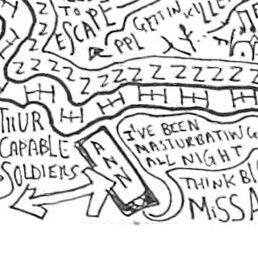 TO
ESCAPE
PPL GETTIN KILLE
Z Z Z Z Z Z Z Z Z Z Z Z Z Z
H H H H H H H
THUR
CAPABLE
SOLDIERS
ANN
I'VE BEEN
MASTURBATING
ALL NIGHT
THINK BI
MiSSA